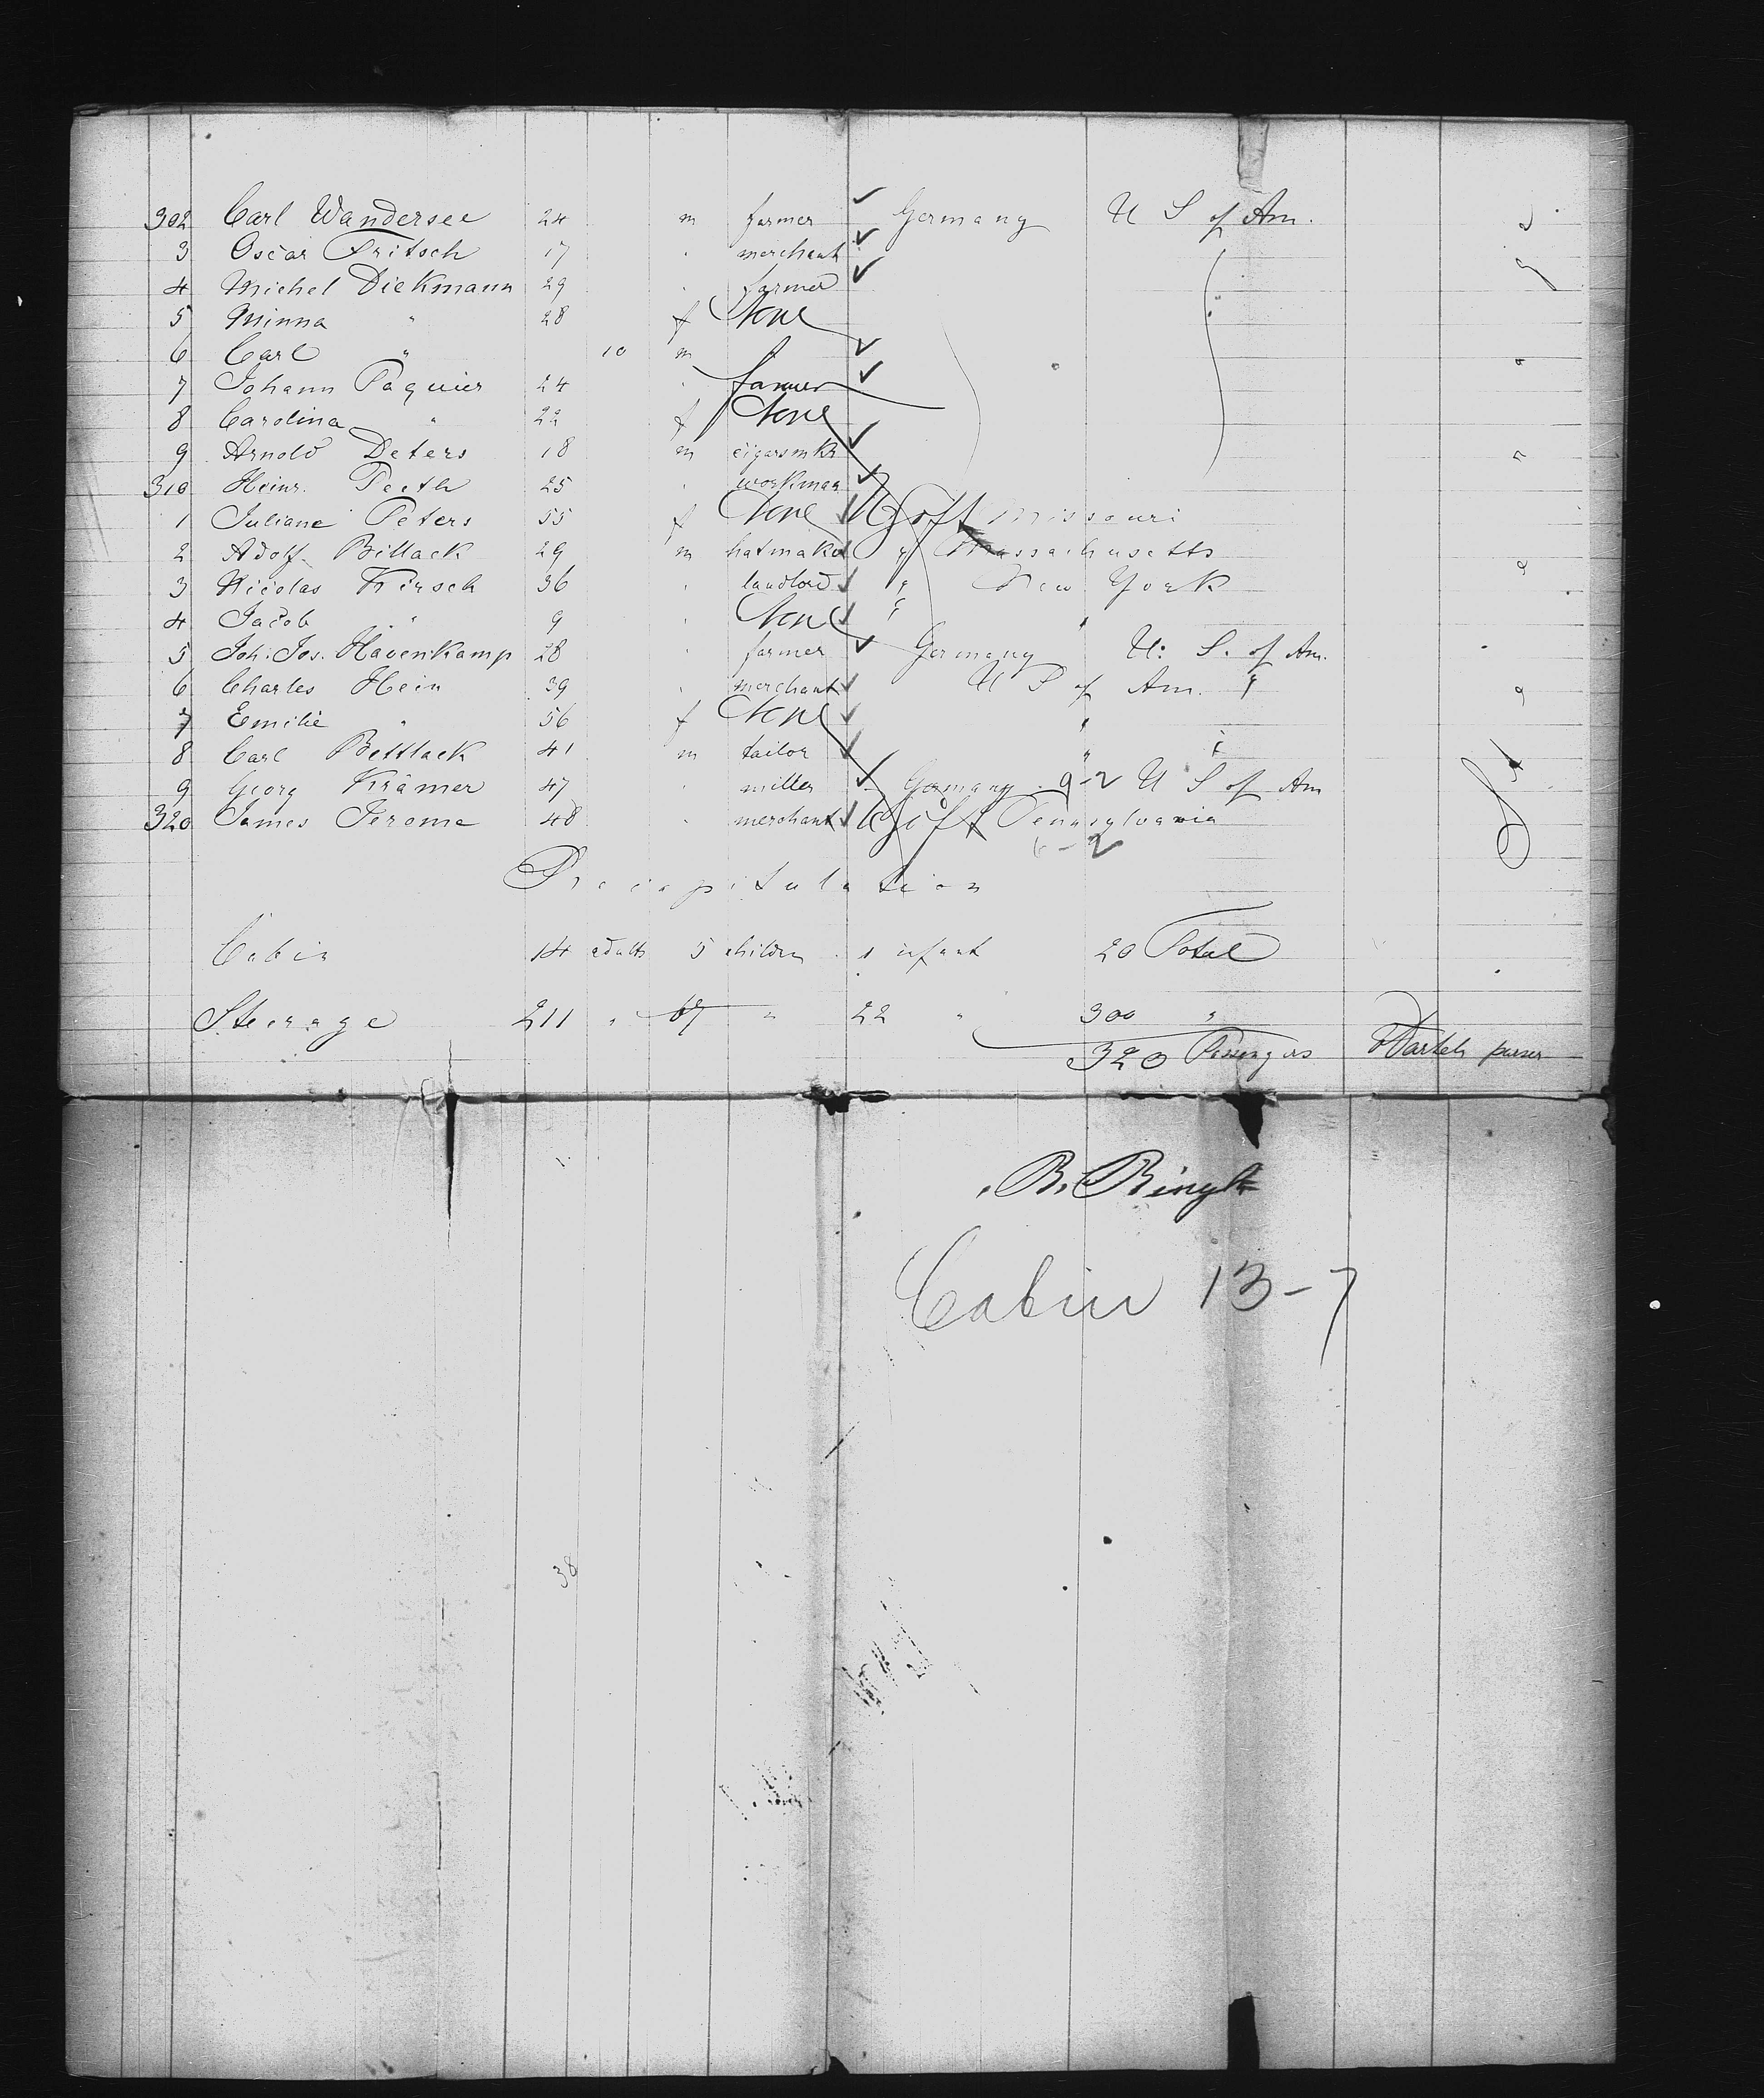 302 Carl Wandersee 24 m farmer ✓ Germany U S of Am.
3 Oscar Fritsch 17 " merchant ✓
4 Michel Diekmann 29 " farmer ✓
5 Minna " 28 f None
6 Carl " 10 m ✓
7 Johann Paquier 24 " farmer ✓
8 Carolina " 22 f None
9 Arnold Deters 18 m cigarsmkr ✓
310 Heinr. 25 " workman ✓
1 Juliane Peters 55 f None ✓ U S of A Missouri
2 Adolf Billack 29 m hatmaker " Massachusetts
3 Nicolas Kirsch 36 " landlord ✓ " New York
4 Jacob " 9 " None ✓ " "
5 Joh. Jos. Havenkamp 28 " farmer ✓ Germany U. S. of Am.
6 Charles Hein 39 " merchant ✓ U S of Am. "
7 Emilie " 56 f None ✓ "
8 Carl Bettlack 41 m tailor ✓ " "
9 Georg Krämer 47 " miller ✓ Germany 9-2 U S of Am
320 James Jerome 48 " merchant ✓ U S of A Pennsylvania
6-2
Recapitulation
Cabin 14 adults 5 children 1 infant 20 Total
Steerage 211 " 67 " 22 " 300 "
320 Passengers purser
Cabin 13-7
38